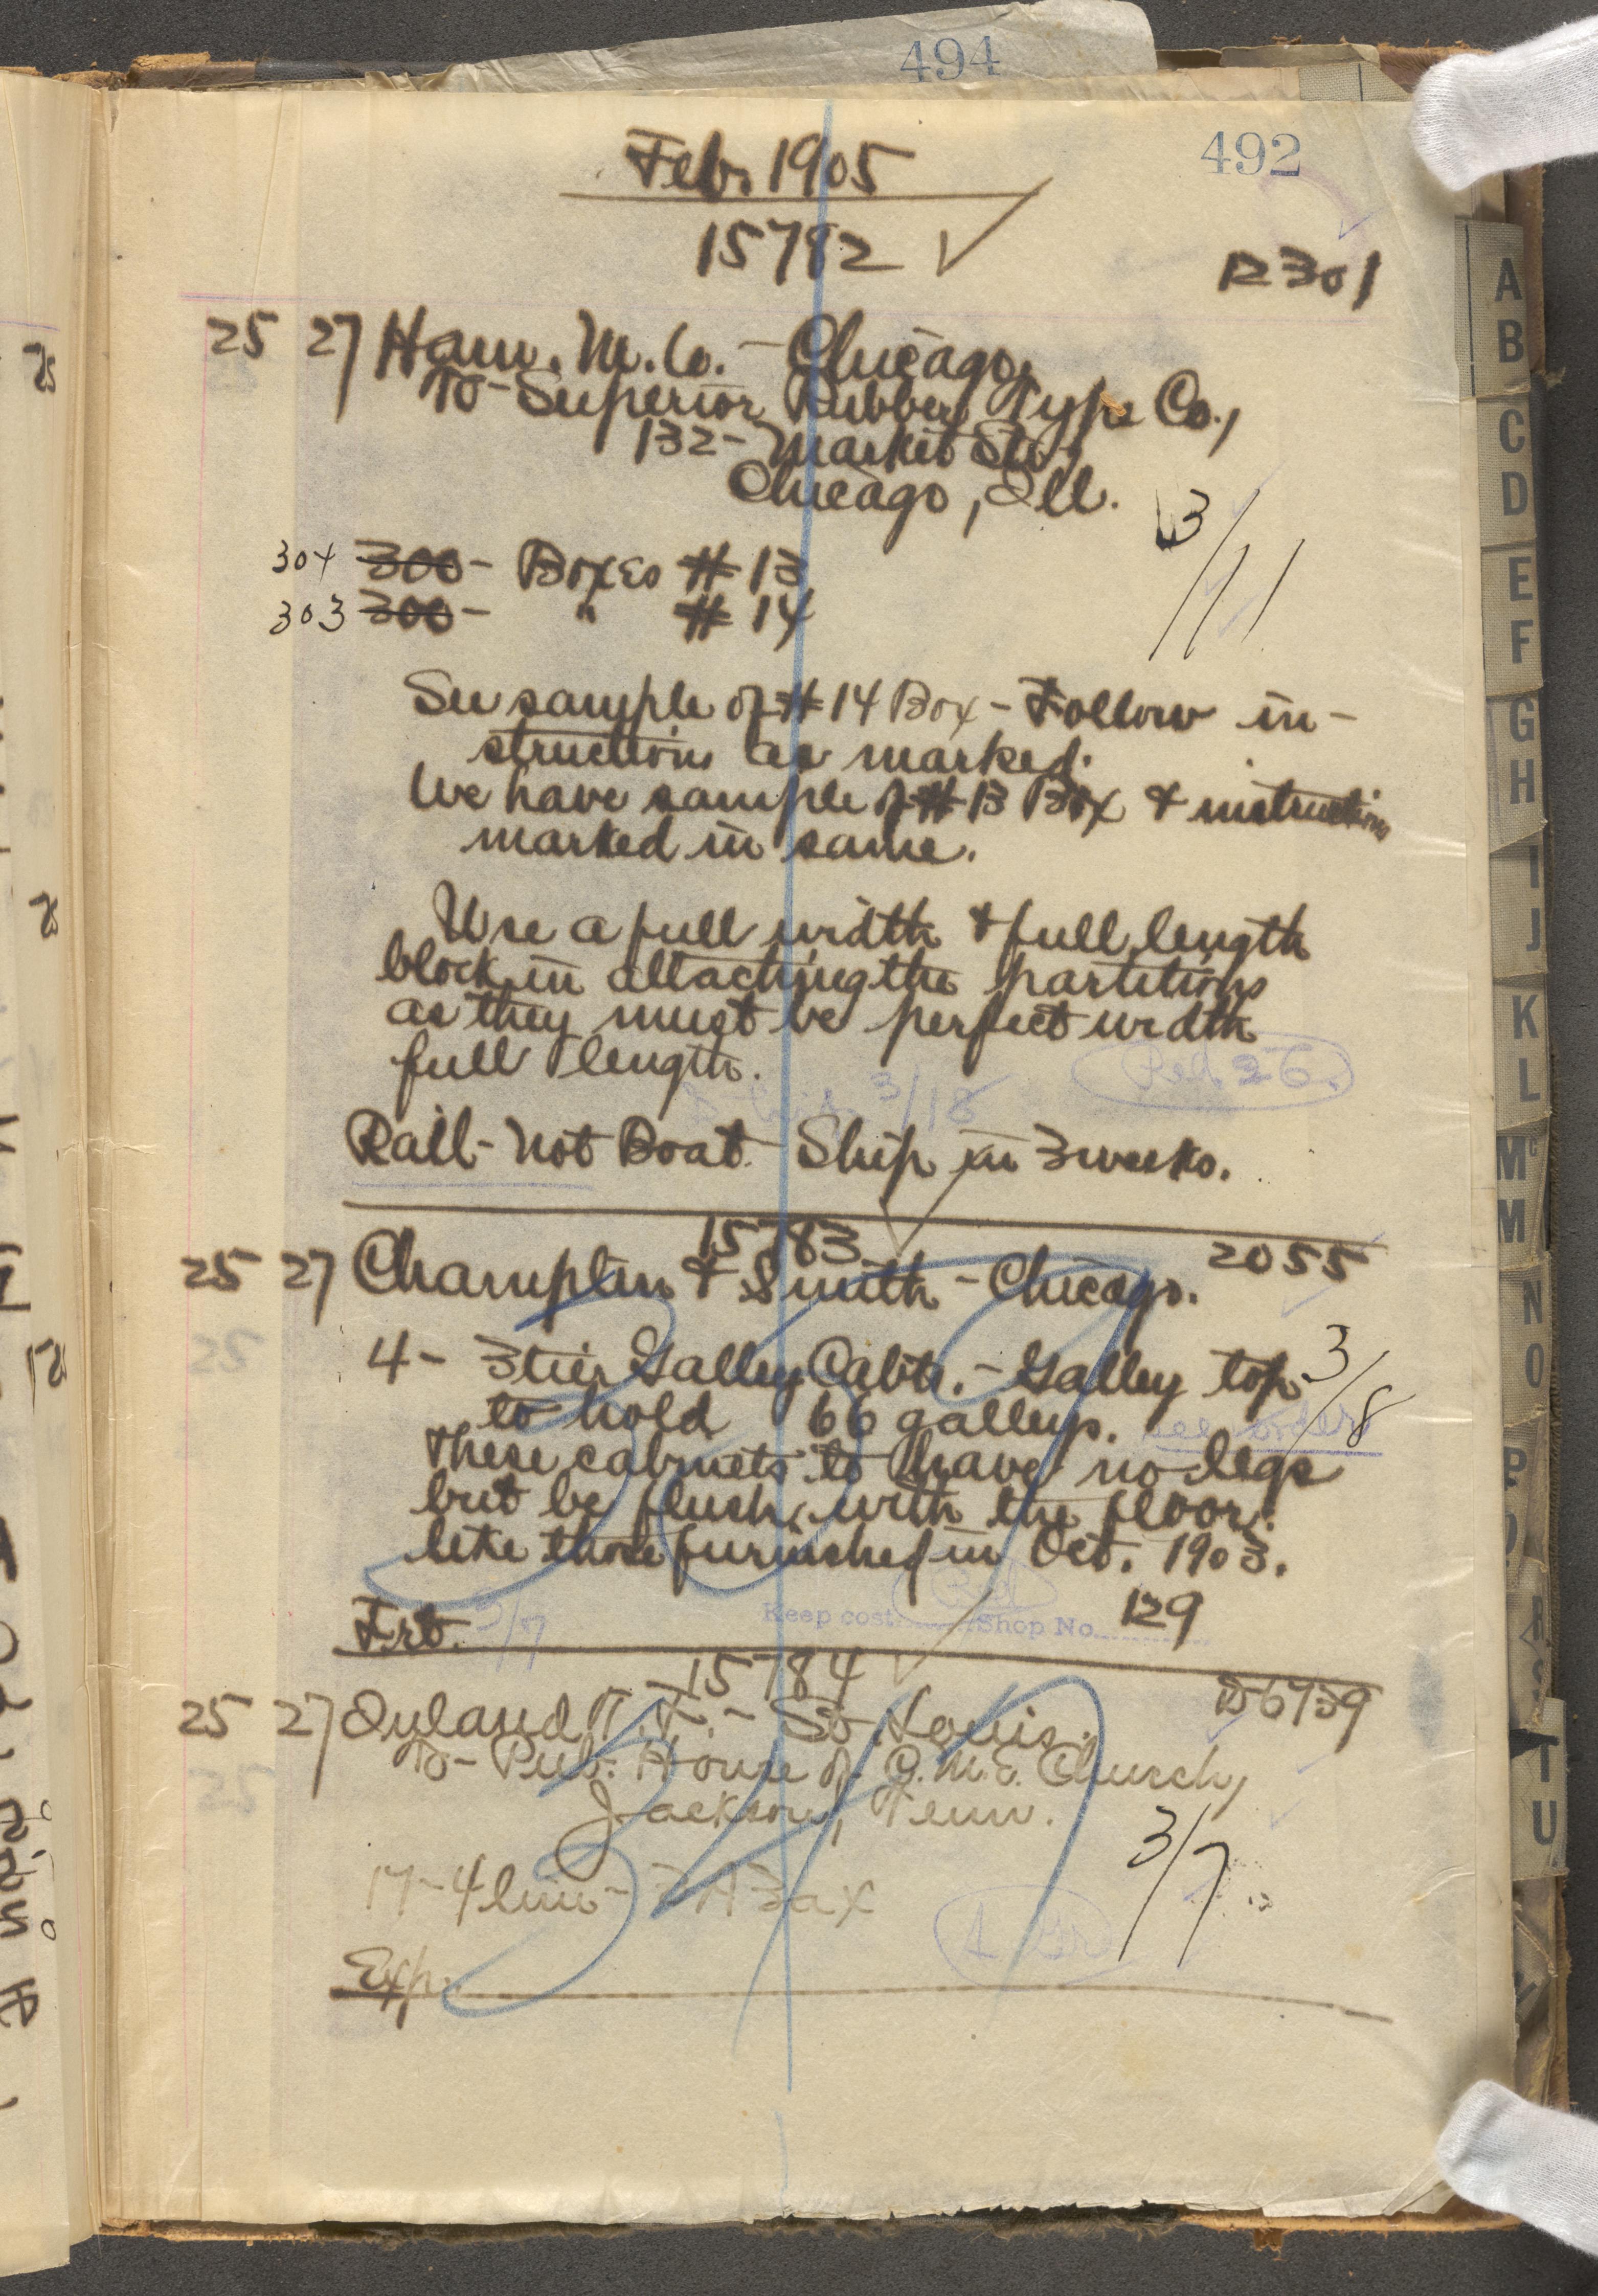 494
492
Feb. 1905
15782 ✓
R301
25 27 Ham. M. Co. - Chicago,
To - Superior Rubber Type Co.,
132 - Market St.,
Chicago, Ill.
3/11
304 300 - Boxes # 13
303 300 - " # 14
See sample of # 14 Box - Follow in-
structions as marked.
We have sample of # 13 Box & instructions
marked in same.
Use a full width & full length
block in attaching the partitions
as they must be perfect width
full length.
3/18
Rail - not Boat - Ship in 3 weeks.
15783 ✓
2055
25 27 Champlin & Smith - Chicago.
4 - 3 tier Galley Cabts. - Galley top
3/8
to hold 66 galleys.
These cabinets to have no legs
but be flush with the floor
like those furnished in Oct. 1903.
Keep cost Shop No.
129
Frt.
15784 ✓
25 27 Inland T. F. - St. Louis.
To - Pub. House of C. M. E. Church,
Jackson, Tenn.
3/7
17 - 4 line -
Exp.
A
B
C
D
E
F
G
H
I
J
K
L
Mc
M
N
O
P
R
S
T
U